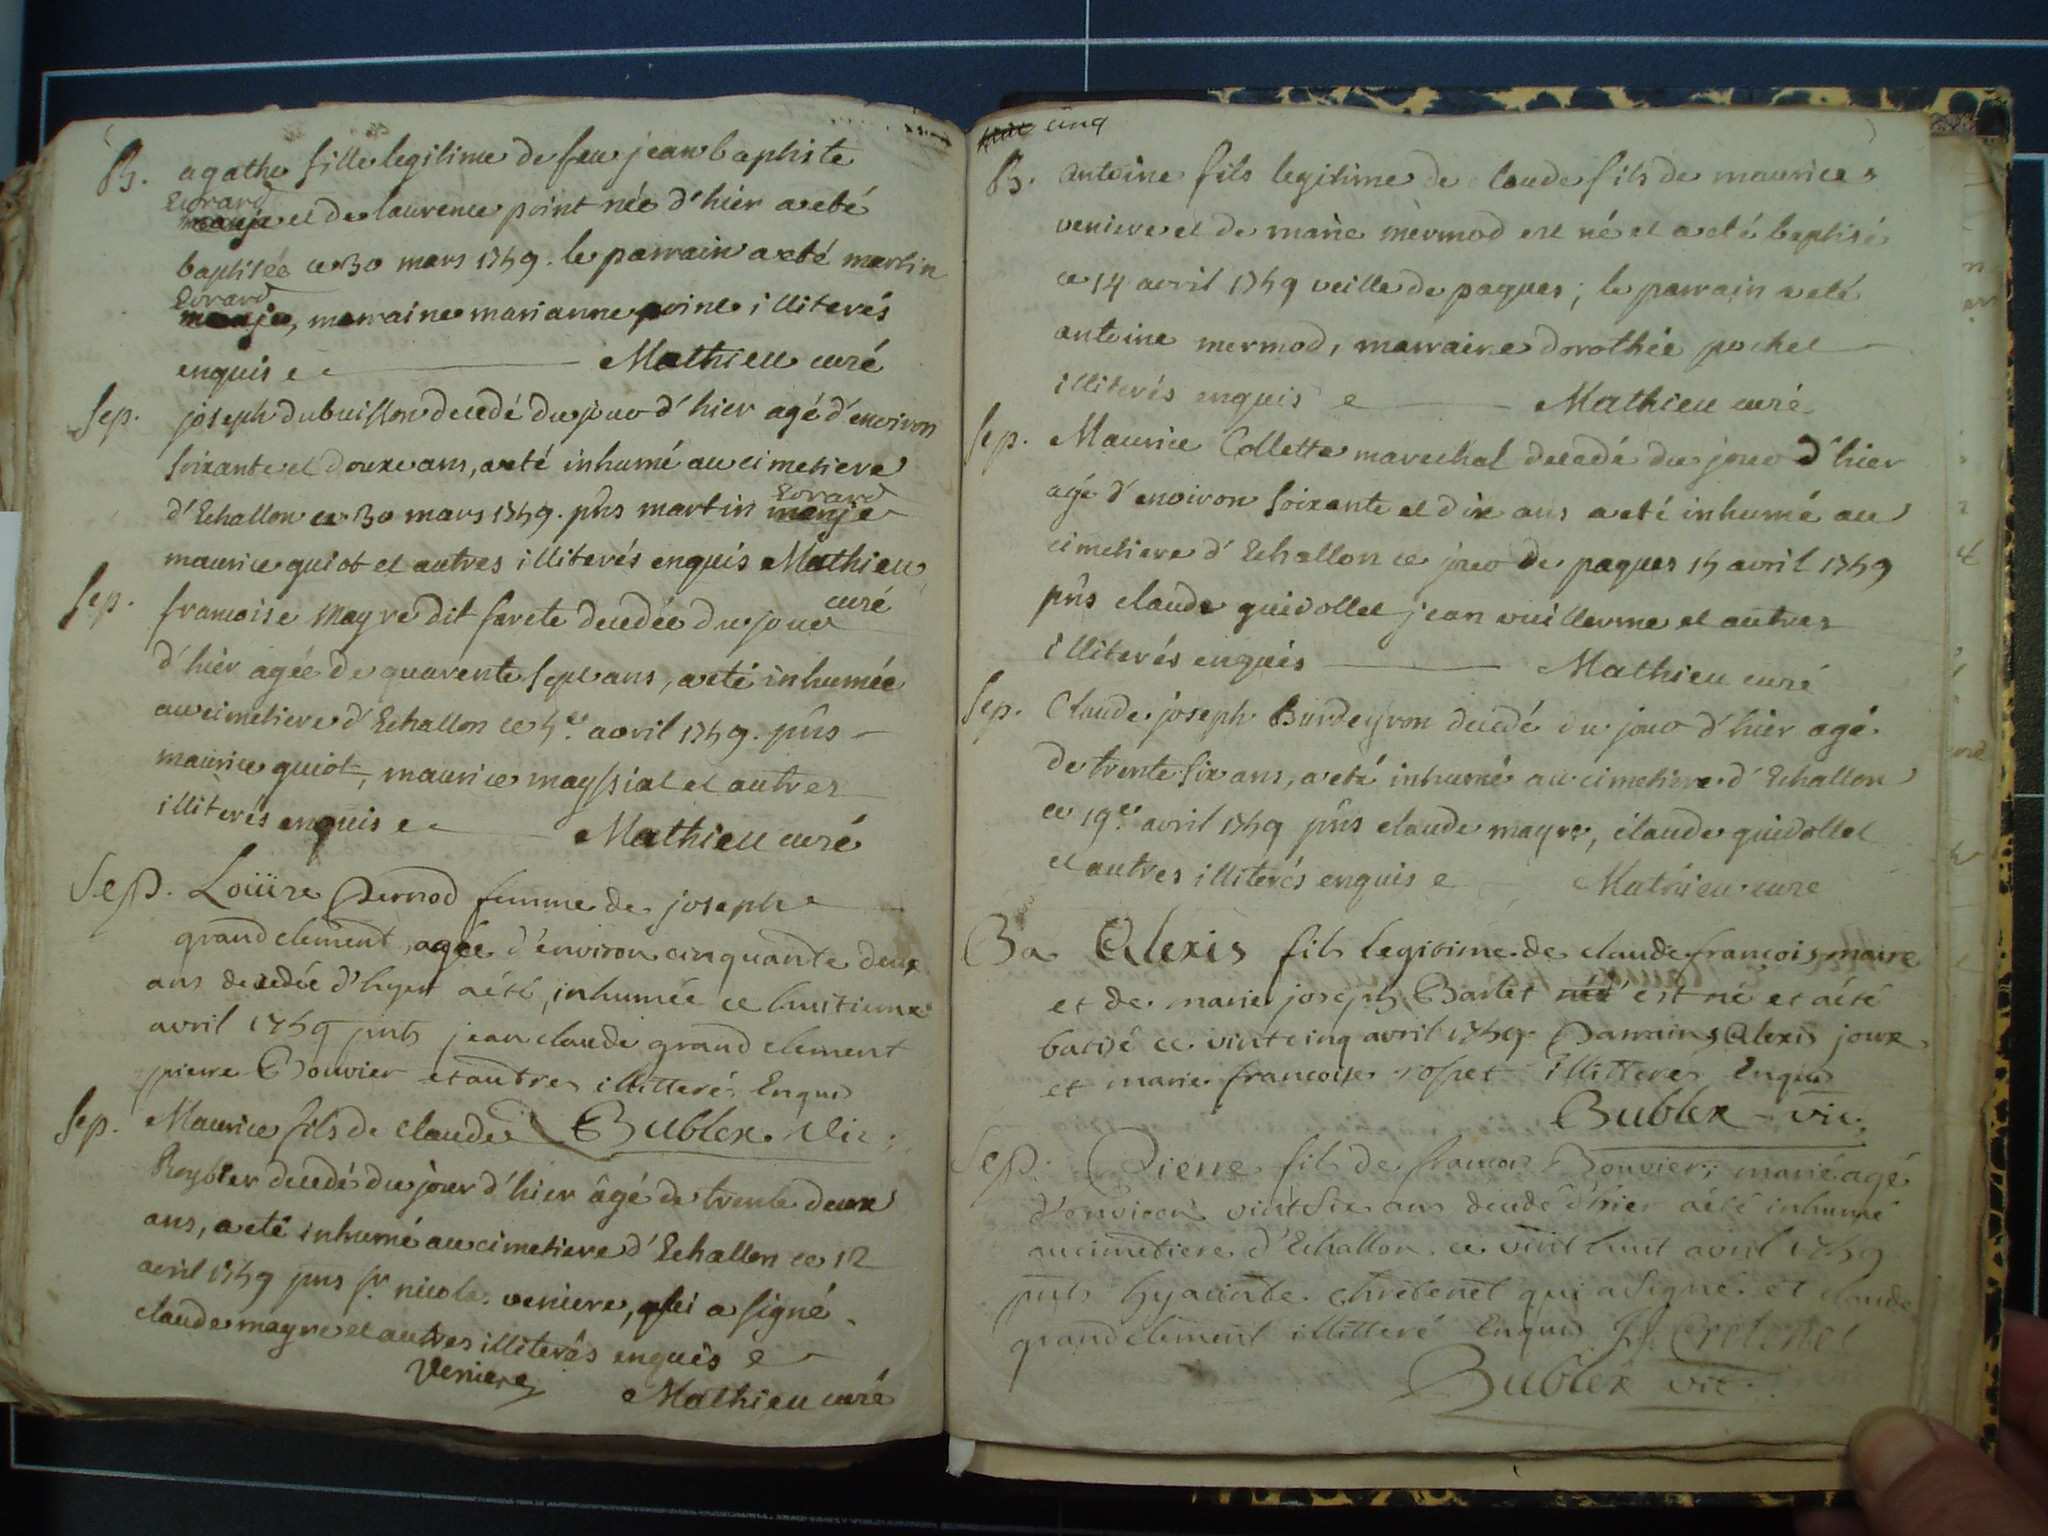 B. agathe fille legitime de feu jean baptiste
Evrard
et de laurence point née d'hier a eté
baptisée ce 30 mars 1759. le parrain a eté martin
Evrard
marraine marianne point illiterés
enquis e Mathieu curé
Sep. joseph dubuisson decedé du jour d'hier agé d'environ
soixante et douze ans, a eté inhumé au cimetiere
Evrard
d'Echallon ce 30 mars 1759. pñs martin manje
maurice guiot et autres illiterés enquis Mathieu
curé
Sep. francoise mayre dit farete decedée du jour
d'hier agée de quarente sept ans, a eté inhumée
au cimetiere d'Echallon ce 5.e avril 1759. pñs
maurice guiot, maurice mayssiat et autres
illiterés enquis e Mathieu curé
Sep. Loüise Pernod femme de joseph
grandclement agée d'environ cinquante deux
ans decedée d'hyer a été inhumée ce huitieme
avril 1759 pnts jean claude grand clement
pierre Bouvier et autres illitterés Enquis
Sep. Maurice fils de claude Bublex. Vic:
Reybier decedé du jour d'hier âgé de trente deux
ans, a eté inhumé au cimetiere d'Echallon ce 12
avril 1759 pns sr. nicolas veniere, qui a signé
claude mayre et autres illiterés enquis e
Veniere
Mathieu curé
cinq
B. antoine fils legitime de claude fils de maurice
veniere et de marie mermod est né et a eté baptisé
ce 14 avril 1759 veille de paques; le parrain a eté
antoine mermod, marraine dorothée pochet
illiterés enquis e Mathieu curé
Sep. Maurice Collette marechal decedé du jour d'hier
agé d'environ soixante et dix ans a eté inhumé au
cimetiere d'Echallon ce jour de paques 15 avril 1759
pñs claude guidollet jean vuillerme et autres
illiterés enquis Mathieu curé
Sep. Claude joseph Burdeyron decedé du jour d'hier agé
de trente six ans, a eté inhumé au cimetiere d'Echallon
ce 19.e avril 1759 pñs claude mayre, claude guidollet
et autres illiterés enquis e Mathieu curé
Ba Alexis fils legitime de claude francois maire
et de marie joseph Barlet née est né et a été
batisé ce vint cinq avril 1759 Parrains Alexis joux
et marie francoise rosset illitteres Enquis
Bublex - vic.
Sep. Pierre fils de francois Bouvier; marié agé
d'environ vint six ans decedé d'hier a été inhumé
au cimetiere d'Echallon ce vint huit avril 1759
pnts hyacinte chretenet qui a signé et claude
grandclement illitteré Enquis h. Cretenet
Bublex vic.